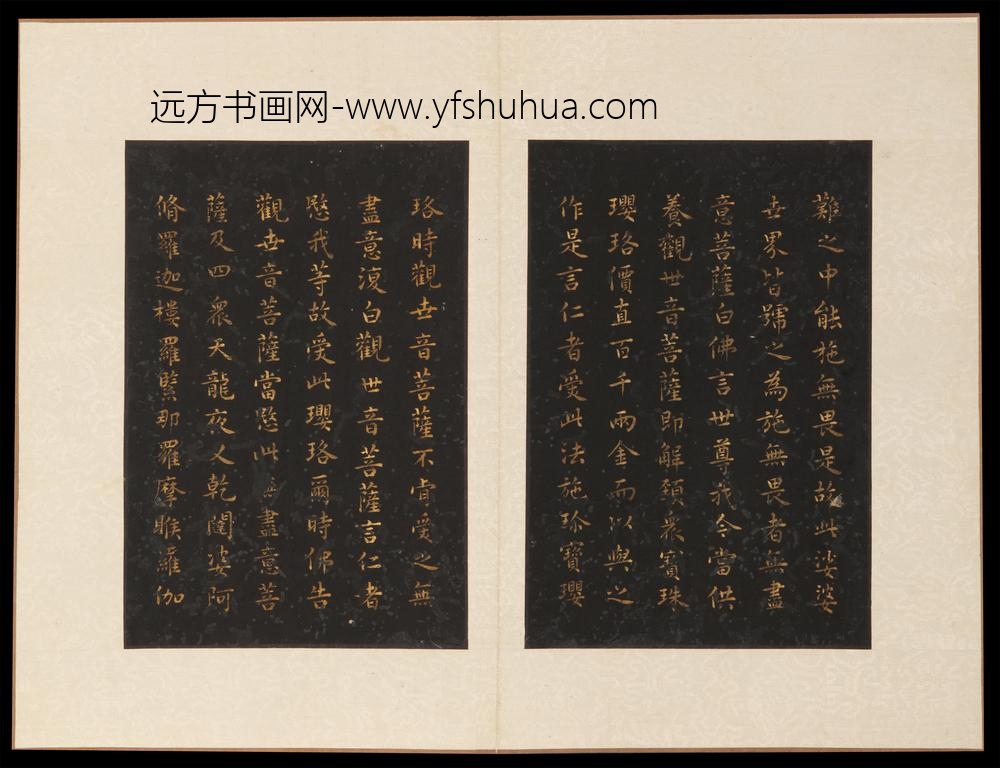 远方书画网-www.yfshuhua.com
難之中能施無畏是故此娑婆
世界皆號之為施無畏者無盡
意菩薩白佛言世尊我今當供
養觀世音菩薩即解頸衆寳珠
瓔珞價直百千兩金而以與之
作是言仁者受此法施珎寳瓔
珞時觀世音菩薩不肯受之無
盡意復白觀世音菩薩言仁者
愍我等故受此瓔珞爾時佛告
觀世音菩薩當愍此無盡意菩
薩及四衆天龍夜叉乾闥婆阿
脩羅迦樓羅緊那羅摩睺羅伽